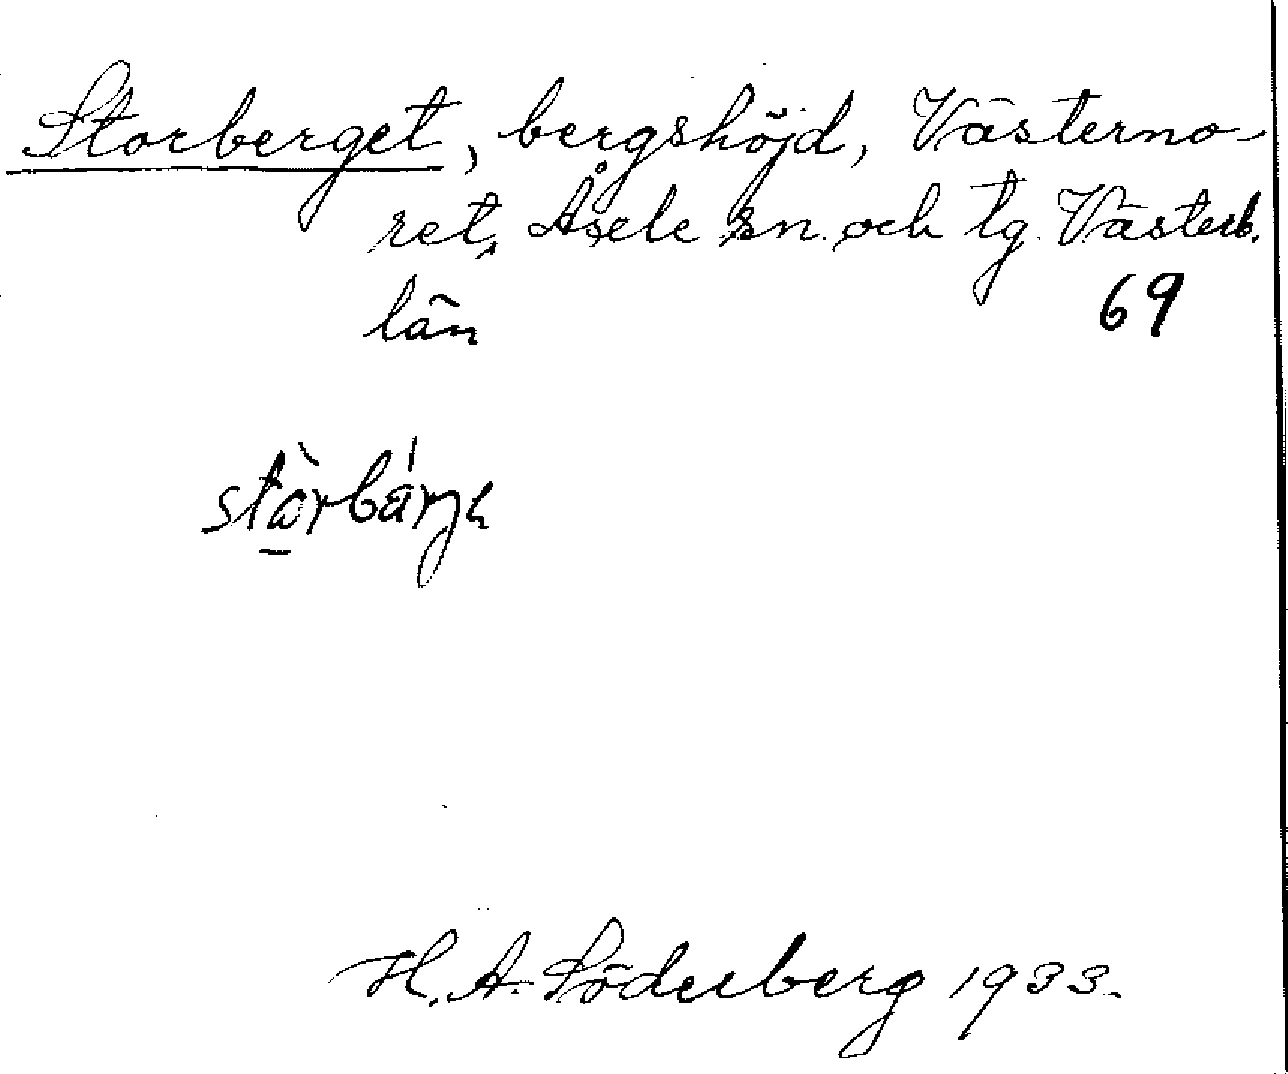 Storberget, bergshöjd, Västerno-
ret, Åsele sn. och tg. Västerb.
län
69
H. A. Söderberg 1933.